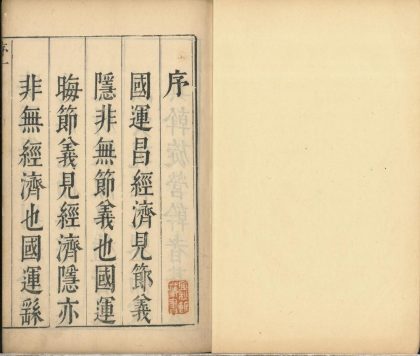 序
國運昌經濟見節義
隱非無節義也國運
晦節義見經濟隱亦
非無經濟也國運繇